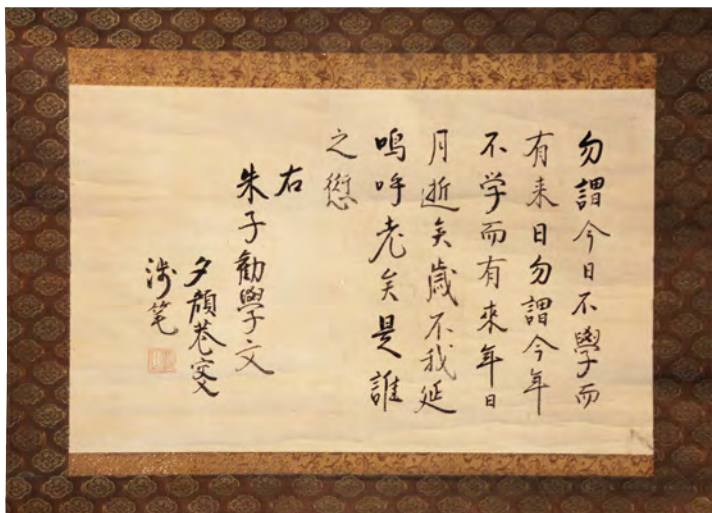 勿謂今日不學而
有来日勿謂今年
不学而有來年日
月逝矣歳不我延
嗚呼老矣是誰
之愆
右
朱子勸學文
夕顔巷叟
渉筆